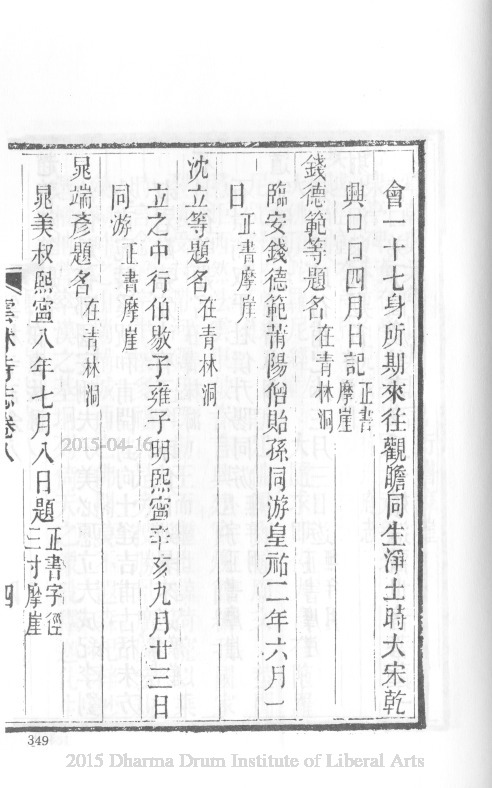 會一十七身所期來往觀瞻同生淨土時大宋乾
興口口四月日記正書摩崖
錢德範等題名在青林洞
臨安錢德範莆陽僧貽孫同游皇祐二年六月一
日正書摩崖
沈立等題名在青林洞
立之中行伯敭子雍子明熙寧辛亥九月廿三日
同游正書摩崖
晁端彥題名在青林洞
晁美叔熙寧八年七月八日題正書字徑三寸摩崖
雲林寺志卷八 四
349
2015-04-16
2015 Dharma Drum Institute of Liberal Arts